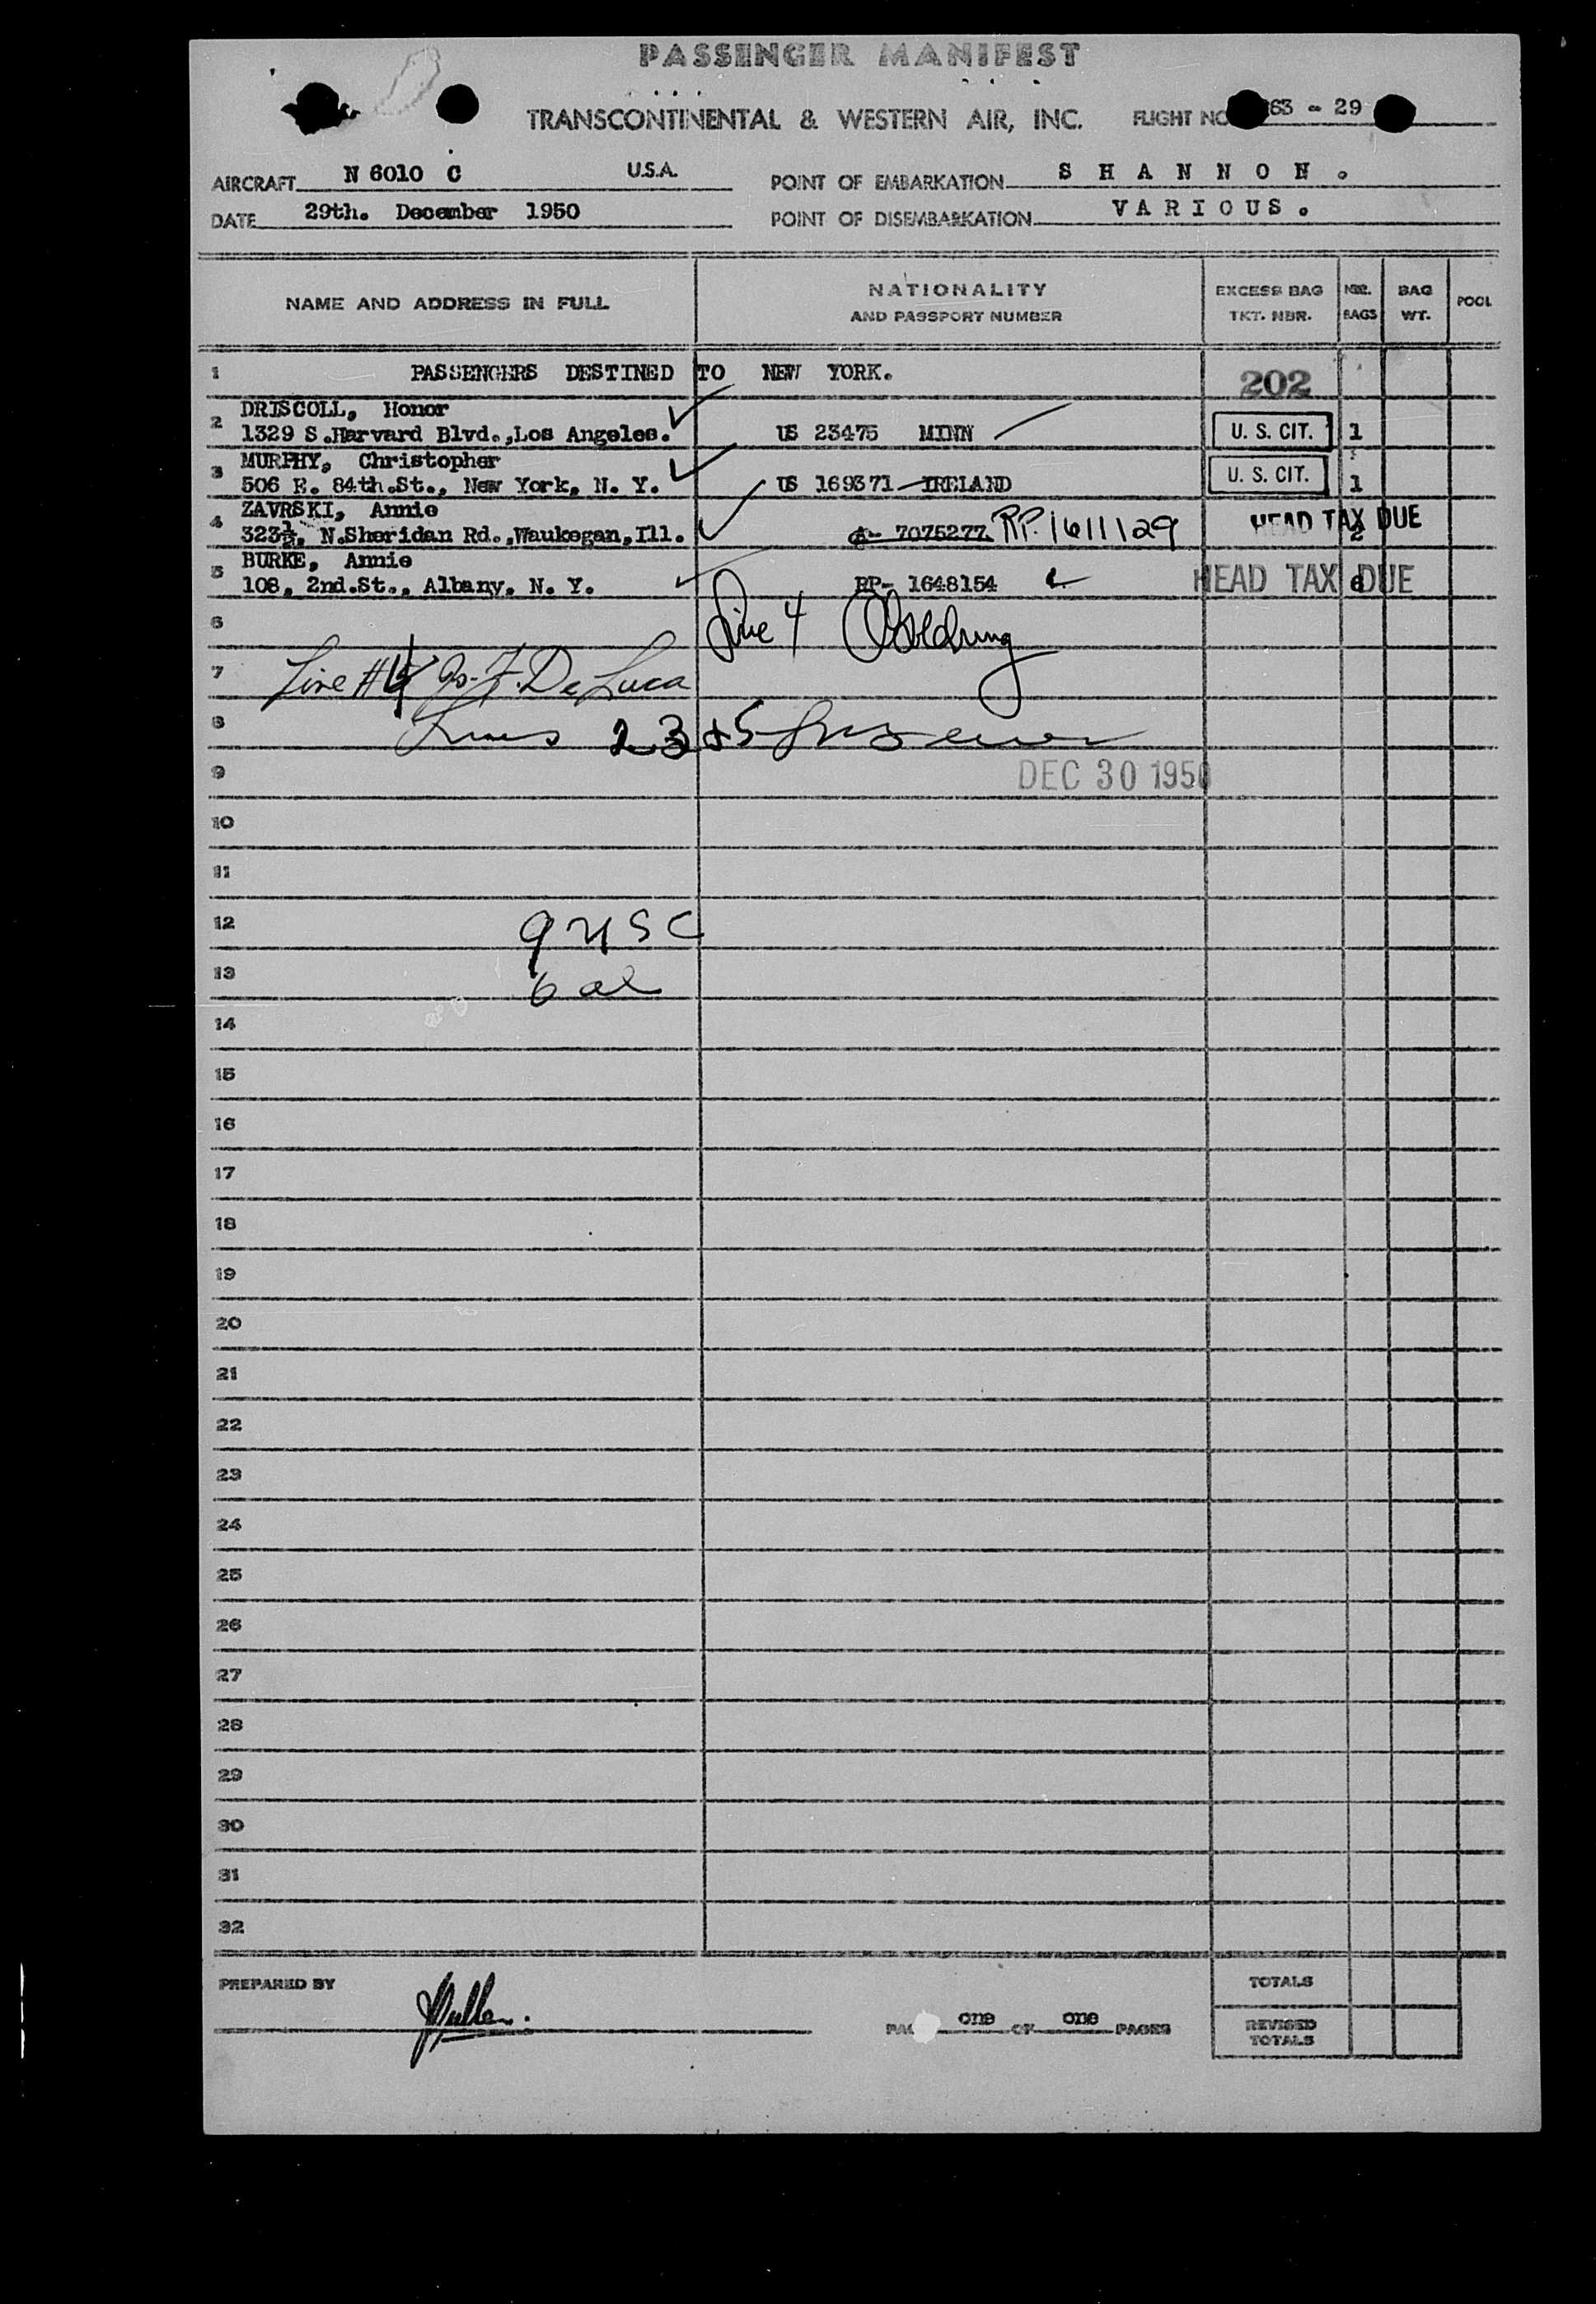 PASSENGER MANIFEST
TRANSCONTINENTAL & WESTERN AIR, INC. FLIGHT NO 63 - 29
AIRCRAFT N 6010 C U.S.A. POINT OF EMBARKATION S H A N N O N .
DATE 29th. December 1950 POINT OF DISEMBARKATION V A R I O U S .
NAME AND ADDRESS IN FULL NATIONALITY AND PASSPORT NUMBER EXCESS BAG TKT. NBR. NBR. BAGS BAG WT. POOL
1 PASSENGERS DESTINED TO NEW YORK. 202
2 DRISCOLL, Honor
1329 S.Harvard Blvd.,Los Angeles. US 23475 MINN U. S. CIT. 1
3 MURPHY, Christopher
506 E. 84th.St., New York, N. Y. US 169371 IRELAND U. S. CIT. 1
4 ZAVRSKI, Annie
323½, N.Sheridan Rd.,Waukegan,Ill. A- 7075277 RP. 1611129 HEAD TAX DUE 2
5 BURKE, Annie
108, 2nd.St., Albany, N. Y. RP- 1648154 HEAD TAX DUE
6 Line 4
7 Line #4 Jo. F. De Luca
8 Lines 2 3 & 5
9 DEC 30 1950
10
11
12 9 USC
13 6 al
14
15
16
17
18
19
20
21
22
23
24
25
26
27
28
29
30
31
32
PREPARED BY TOTALS
PAG one OF one PAGES REVISED TOTALS